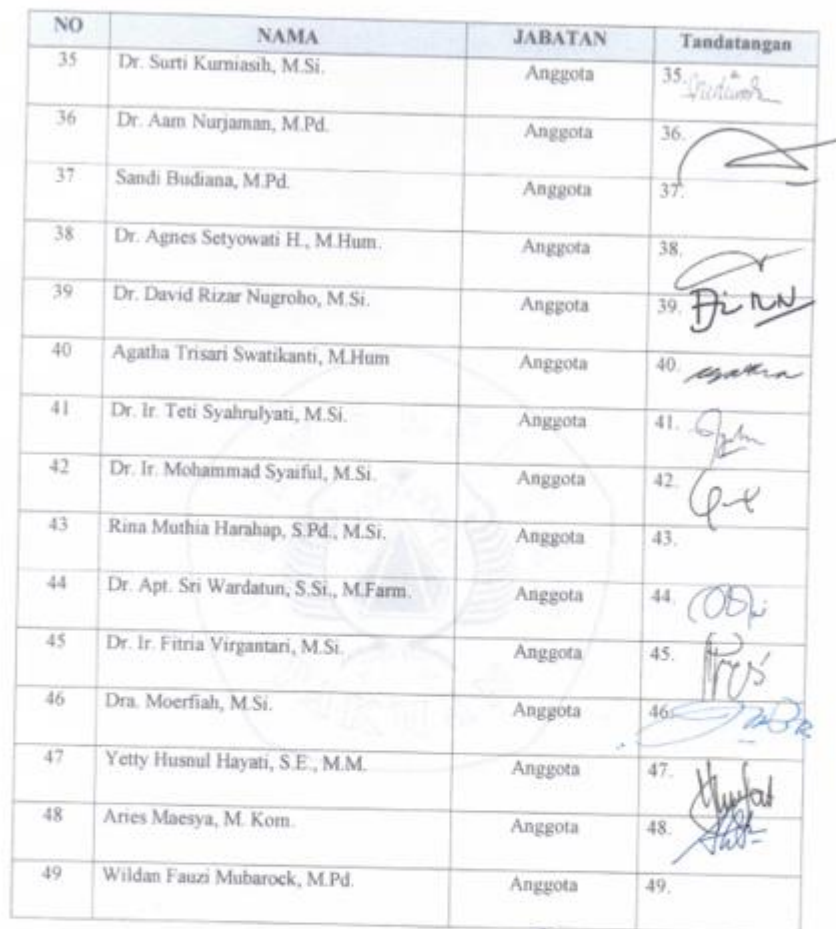 NO NAMA JABATAN Tandatangan
35 Dr. Surti Kurniasih, M.Si. Anggota 35.
36 Dr. Aam Nurjaman, M.Pd. Anggota 36.
37 Sandi Budiana, M.Pd. Anggota 37.
38 Dr. Agnes Setyowati H., M.Hum. Anggota 38.
39 Dr. David Rizar Nugroho, M.Si. Anggota 39.
40 Agatha Trisari Swatikanti, M.Hum Anggota 40.
41 Dr. Ir. Teti Syahrulyati, M.Si. Anggota 41.
42 Dr. Ir. Mohammad Syaiful, M.Si. Anggota 42.
43 Rina Muthia Harahap, S.Pd., M.Si. Anggota 43.
44 Dr. Apt. Sri Wardatun, S.Si., M.Farm. Anggota 44.
45 Dr. Ir. Fitria Virgantari, M.Si. Anggota 45.
46 Dra. Moerfiah, M.Si. Anggota 46.
47 Yetty Husnul Hayati, S.E., M.M. Anggota 47.
48 Aries Maesya, M. Kom. Anggota 48.
49 Wildan Fauzi Mubarock, M.Pd. Anggota 49.